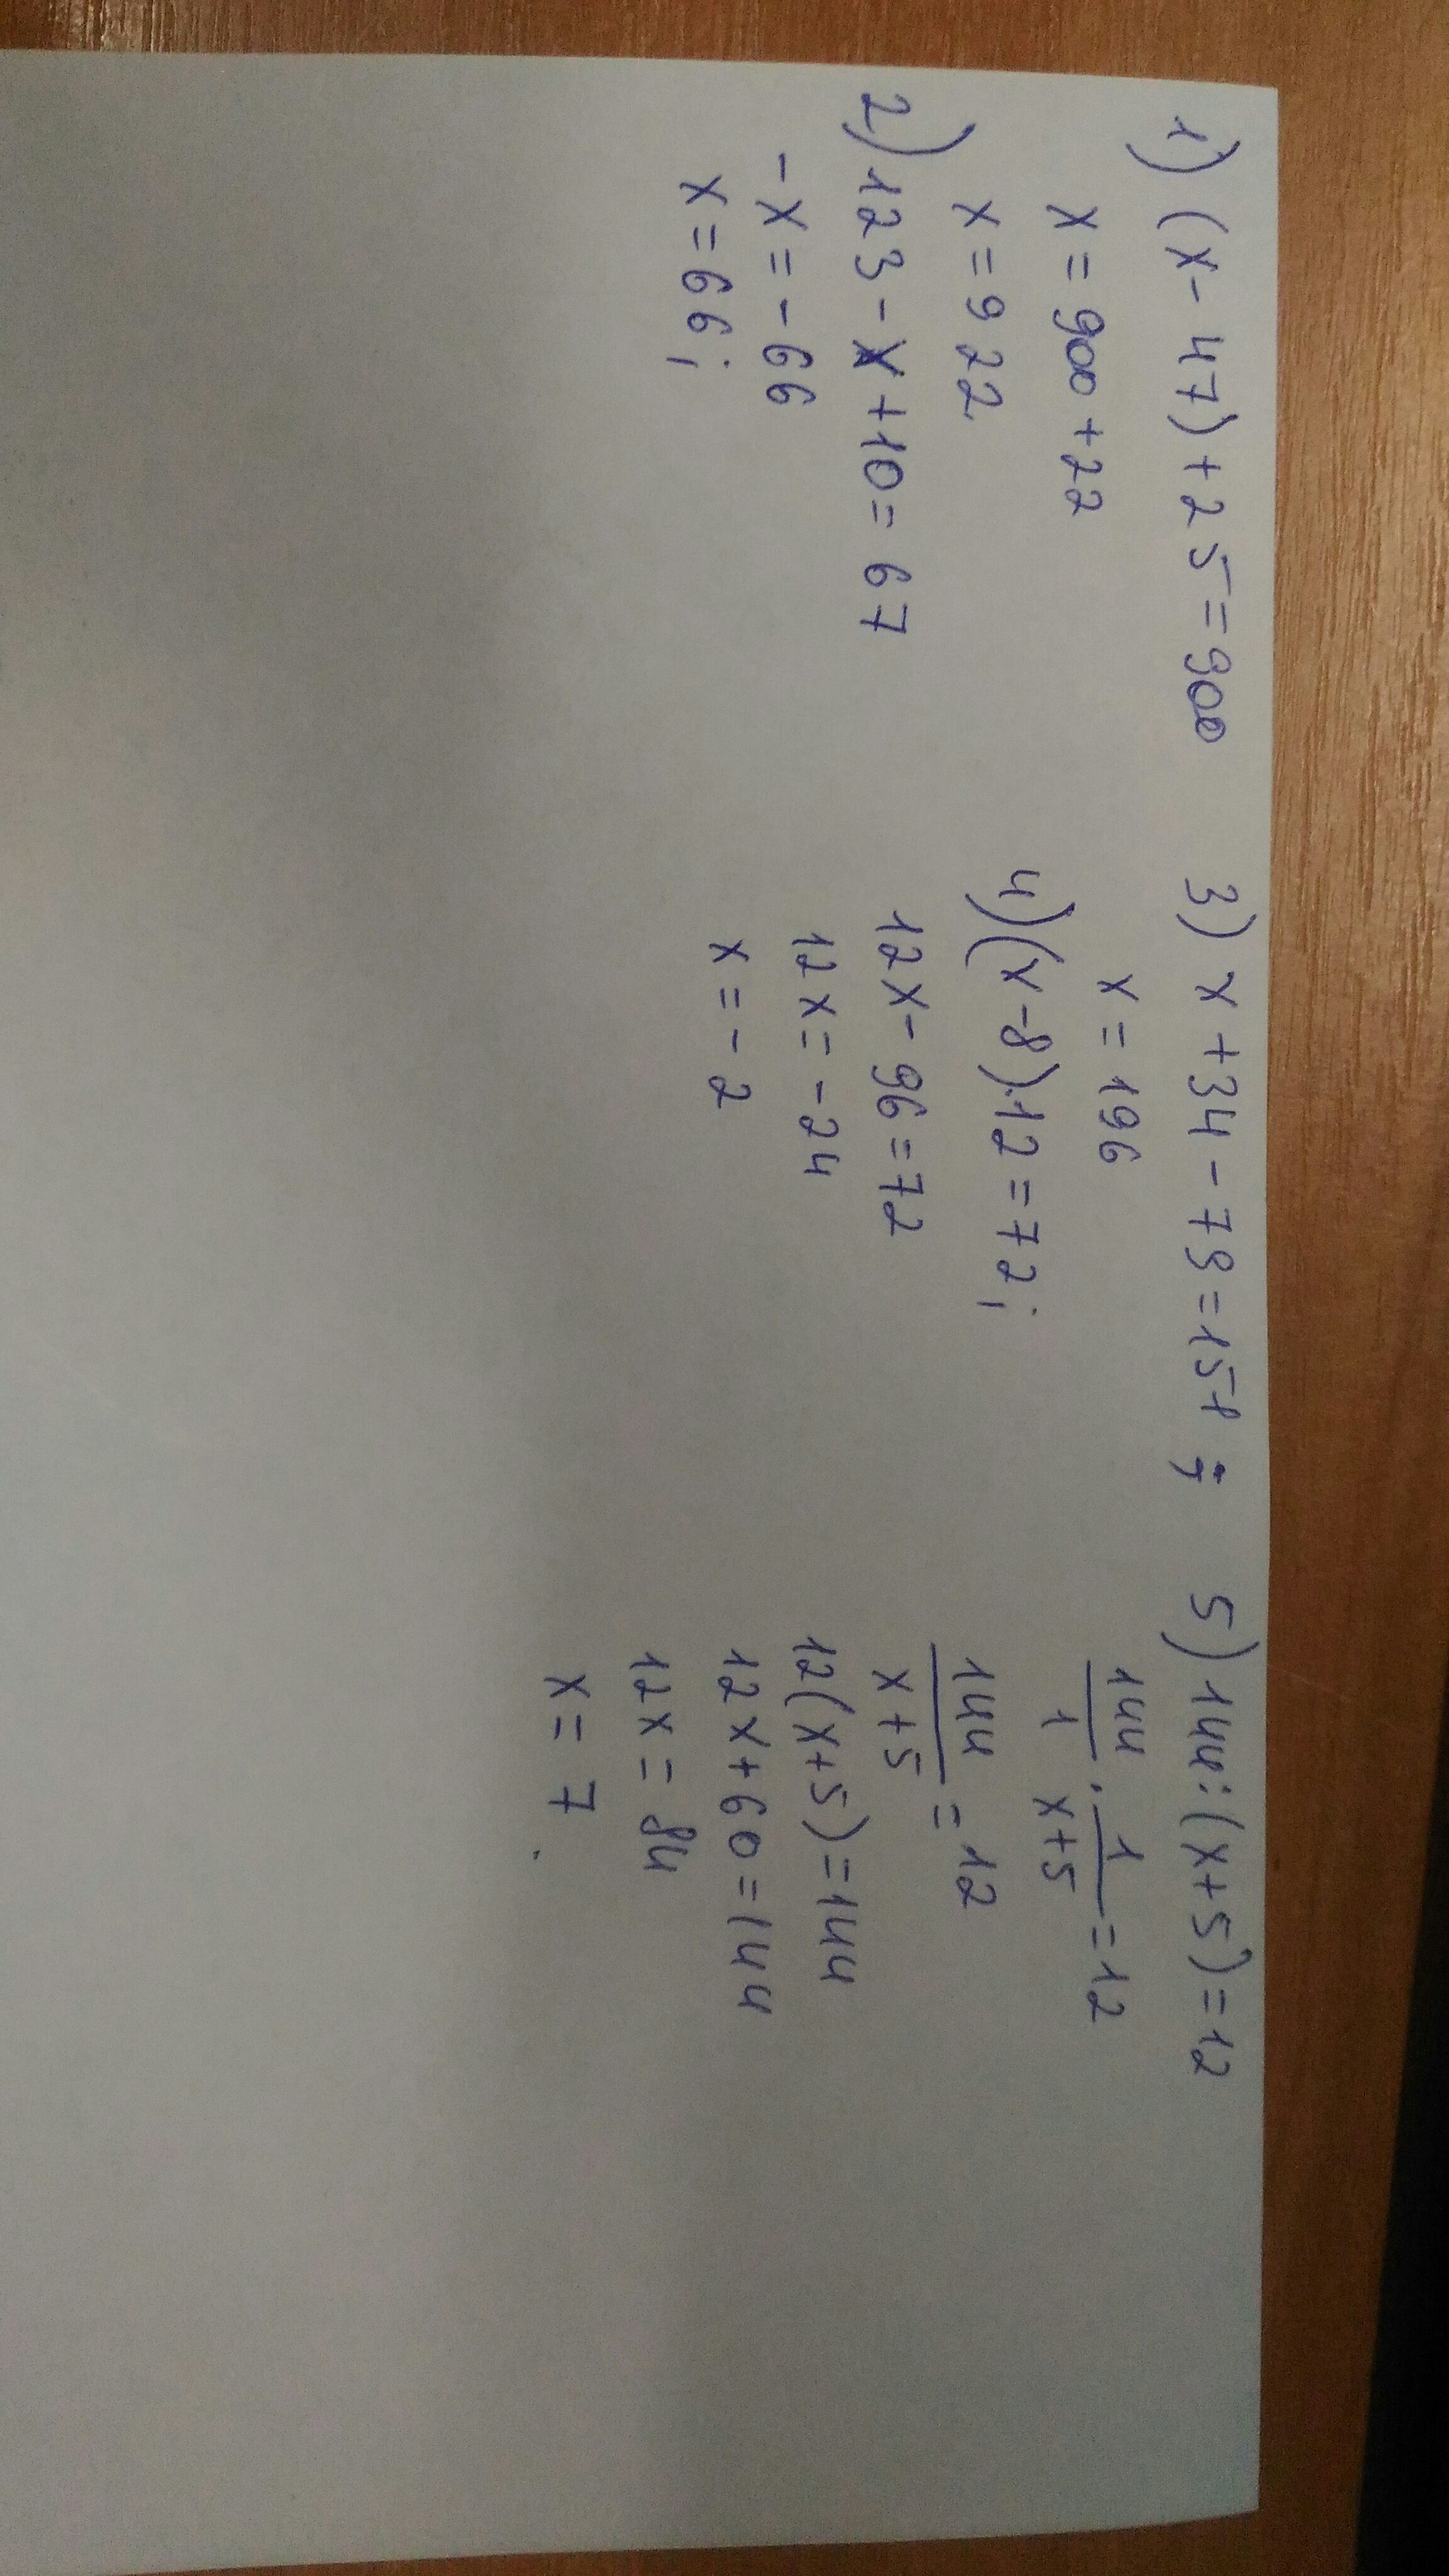 1) (x - 47) + 25 = 900
x = 900 + 22
x = 922
2) 123 - x + 10 = 67
-x = -66
x = 66;
3) x + 34 - 79 = 151;
x = 196
4) (x - 8)·12 = 72;
12x - 96 = 72
12x = -24
x = -2
5) 144 : (x + 5) = 12
144/1 · 1/x+5 = 12
144/x+5 = 12
12(x + 5) = 144
12x + 60 = 144
12x = 84
x = 7